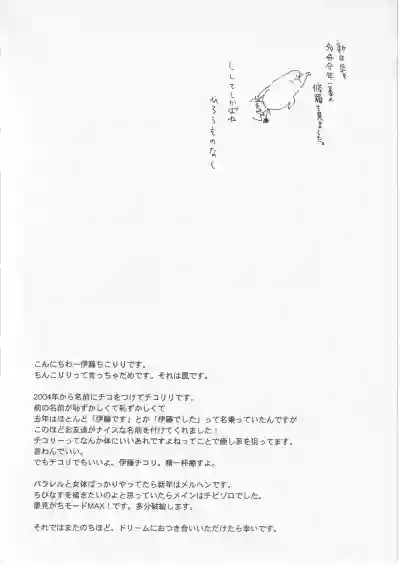 新年早々
多分今年一番の
修羅を見ました。
ししてしかばね
ひろうものなし
こんにちわー伊藤ちこりりです。
ちんこりりって言っちゃだめです。それは罠です。
2004年から名前にチコをつけてチコリリです。
前の名前が恥ずかしくて恥ずかしくて
去年はほとんど「伊藤です」とか「伊藤でした」って名乗っていたんですが
このほどお友達がナイスな名前を付けてくれました!
チコリーってなんか体にいいあれですよねってことで癒し系を狙ってます。
言わんでいい。
でもチコリでもいいよ。伊藤チコリ。精一杯癒すよ。
パラレルと女体ばっかりやってたら新年はメルヘンです。
ちびなすを描きたいのよと思っていたらメインはチビゾロでした。
夢見がちモードMAX!です。多分破綻します。
それではまたのちほど、ドリームにおつき合いいただけたら幸いです。